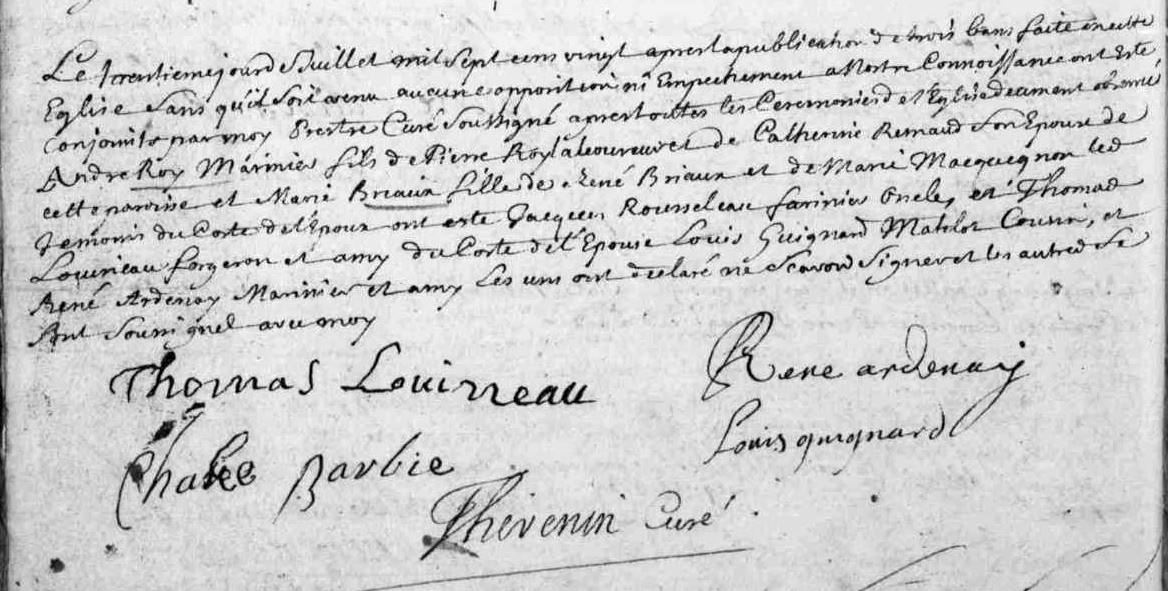 Le trentieme jour de Juillet mil sept cens vingt apres la publication de trois bans faite en cette
Eglise sans qu'il soit venu aucune opposition ni Empechement a Nostre Connoissance ont Esté
conjoints par moy Prestre Curé soussigné apres toutes les Ceremonies de l'Eglise deument observé
André Roy Marinier fils de Pierre Roy laboureur et de Catherine Renaud son Epouse de
cette paroisse et Marie Briaux fille de René Briaux et de Marie Macquegnon les
temoins du Coste de l'Epoux ont esté Jacques Rousseleau farinier Oncle, et Thomas
Louineau forgeron et amy du Coste de l'Epouse Louis Guignard Matelot Cousin, et
René Ardenay Marinier et amy Les uns ont declaré ne scavoir signer et les autres se
sont soussignes avec moy
Thomas Louineau
Rene ardenay
Louis guignard
Charles Barbie
Thevenin Curé